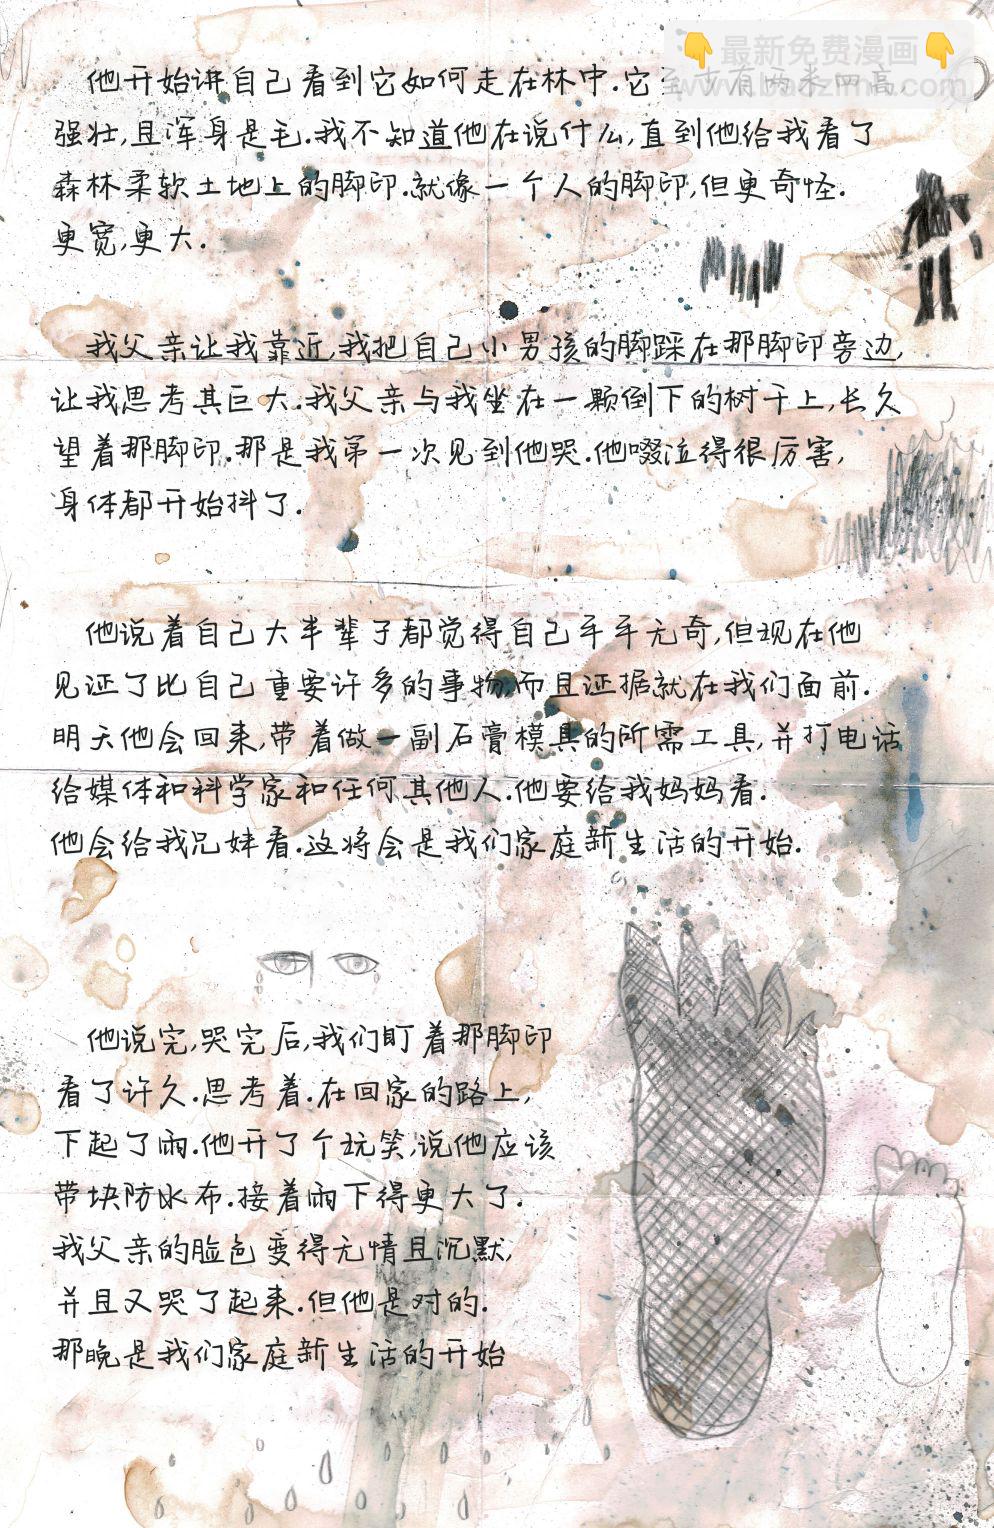 👇最新免费漫画👇
他开始讲自己看到它如何走在林中.它至少有两米四高,
强壮,且浑身是毛.我不知道他在说什么,直到他给我看了
森林柔软土地上的脚印.就像一个人的脚印,但更奇怪.
更宽,更大.
我父亲让我靠近,我把自己小男孩的脚踩在那脚印旁边,
让我思考其巨大.我父亲与我坐在一颗倒下的树干上,长久
望着那脚印.那是我第一次见到他哭.他啜泣得很厉害,
身体都开始抖了.
他说着自己大半辈子都觉得自己平平无奇,但现在他
见证了比自己重要许多的事物,而且证据就在我们面前.
明天他会回来,带着做一副石膏模具的所需工具,并打电话
给媒体和科学家和任何其他人.他要给我妈妈看.
他会给我兄妹看.这将会是我们家庭新生活的开始.
他说完,哭完后,我们盯着那脚印
看了许久.思考着.在回家的路上,
下起了雨.他开了个玩笑,说他应该
带块防水布.接着雨下得更大了.
我父亲的脸色变得无情且沉默,
并且又哭了起来.但他是对的.
那晚是我们家庭新生活的开始